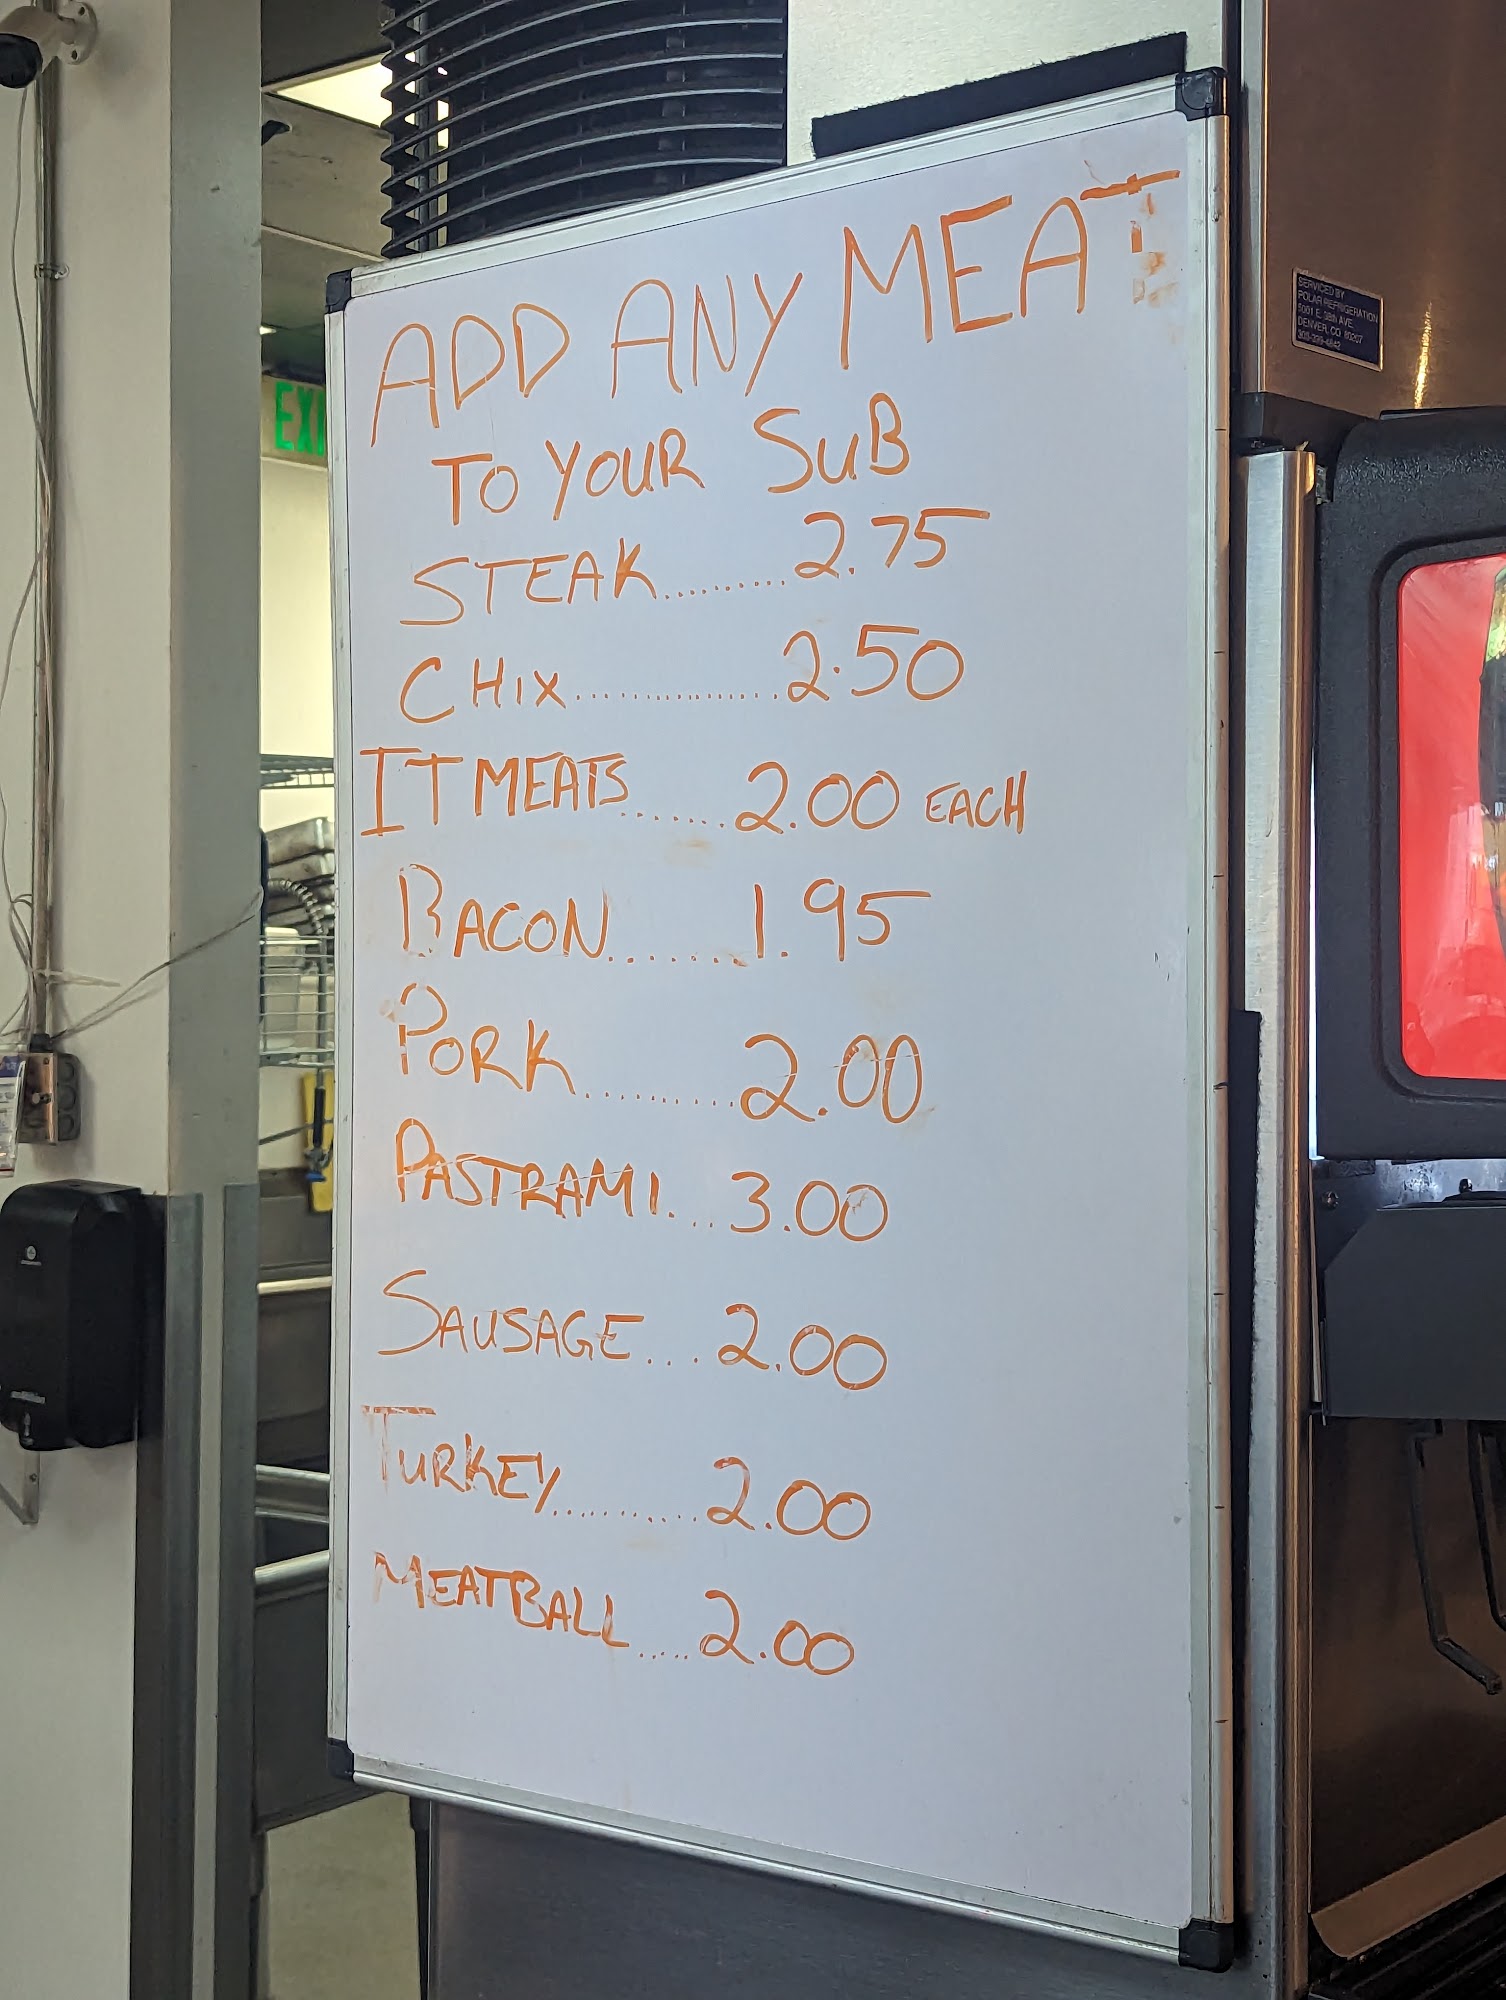 ADD ANY MEAT
TO YOUR SUB
STEAK.........2.75
CHIX................2.50
IT MEATS.......2.00 EACH
BACON.......1.95
PORK..........2.00
PASTRAMI....3.00
SAUSAGE....2.00
TURKEY..........2.00
MEATBALL.....2.00
EXI
SERVICED BY
POLAR REFRIGERATION
5001 E. 38th AVE
DENVER, CO 80207